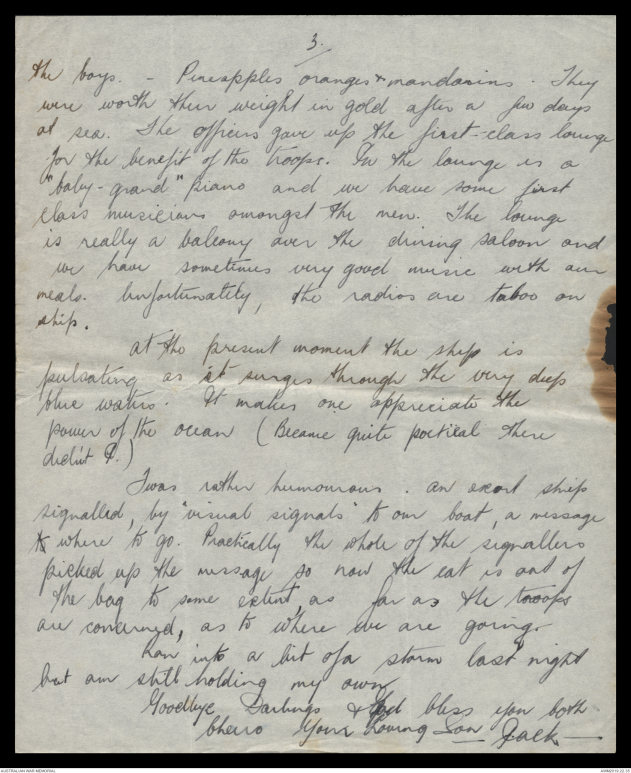 3.
the boys. - Pineapples oranges & mandarins. They
were worth their weight in gold after a few days
at sea. The officers gave up the first-class lounge
for the benefit of the troops. In the lounge is a
"baby-grand" piano and we have some first
class musicians amongst the men. The lounge
is really a balcony over the dining saloon and
we have sometimes very good music with our
meals. Unfortunately, the radios are taboo on
ship.
At the present moment the ship is
pulsating as it surges through the very deep
blue waters. It makes one appreciate the
power of the ocean (Became quite poetical there
didn't I.)
Twas rather humourous. An escort ship
signalled, by "visual signals" to our boat, a message
to where to go. Practically the whole of the signallers
picked up the message so now the cat is out of
the bag to some extent, as far as the troops
are concerned, as to where we are going.
Ran into a bit of a storm last night
but am still holding my own
Goodbye Darlings & God bless you both
Cheerio Your Loving Son Jack
AUSTRALIAN WAR MEMORIAL
AWM2019.22.35